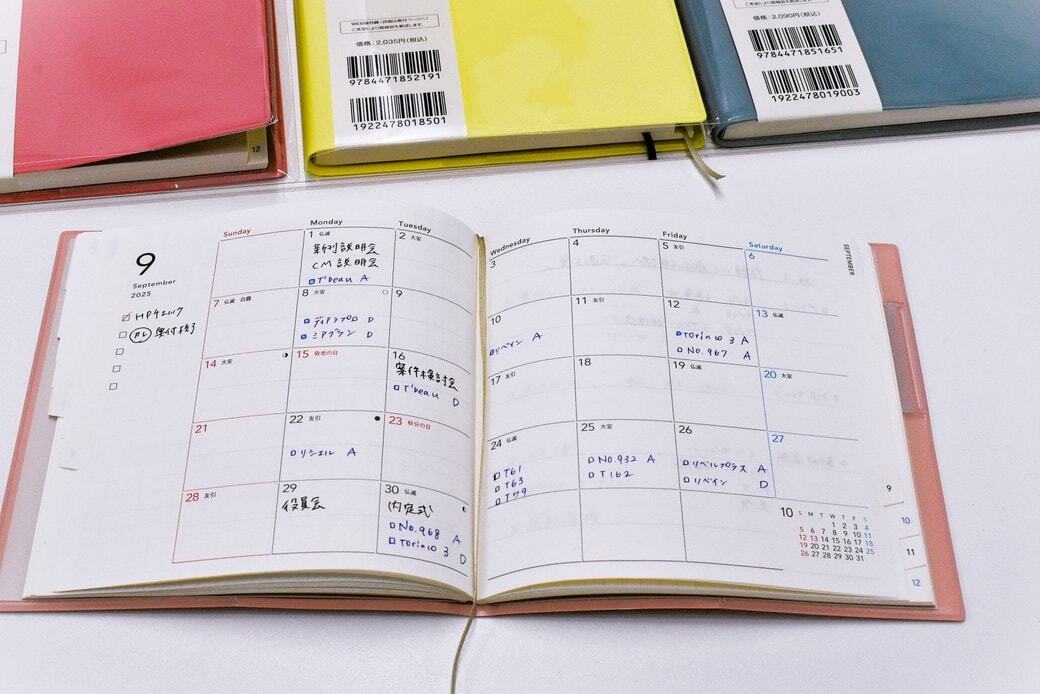 12
WEB校付録(詳細は巻付ページへ)
ご希望により路線図を郵送します。
価格:2,035円(税込)
9784471852191
1922478018501
ご希望により路線図を郵送します。
価格:2,090円(税込)
9784471851651
1922478019003
9
September
2025
HPチェック
PL 奥付校了
Sunday Monday Tuesday
1 仏滅
新刊説明会
CM説明会
T'beau A
2 大安
7 仏滅 白露
8 大安
ディアンプロ D
ミアグラン D
9
14 大安
15 敬老の日
16
案件検討会
T'beau D
21
22 友引
リシェル A
23 秋分の日
28 友引
29
役員会
30 仏滅
内定式
No.968 A
Torinco 3 D
Wednesday Thursday Friday Saturday
SEPTEMBER
3
4
5 友引
6
10
リベイン A
11 友引
12
Torinco 3 A
No.967 A
13 仏滅
17 友引
18
19 仏滅
20 大安
24 仏滅
T61
T63
T79
25 大安
No.932 A
T162
26
リベルプラス A
リベイン D
27
10
S M T W T F S
1 2 3 4
5 6 7 8 9 10 11
12 13 14 15 16 17 18
19 20 21 22 23 24 25
26 27 28 29 30 31
9
10
11
12